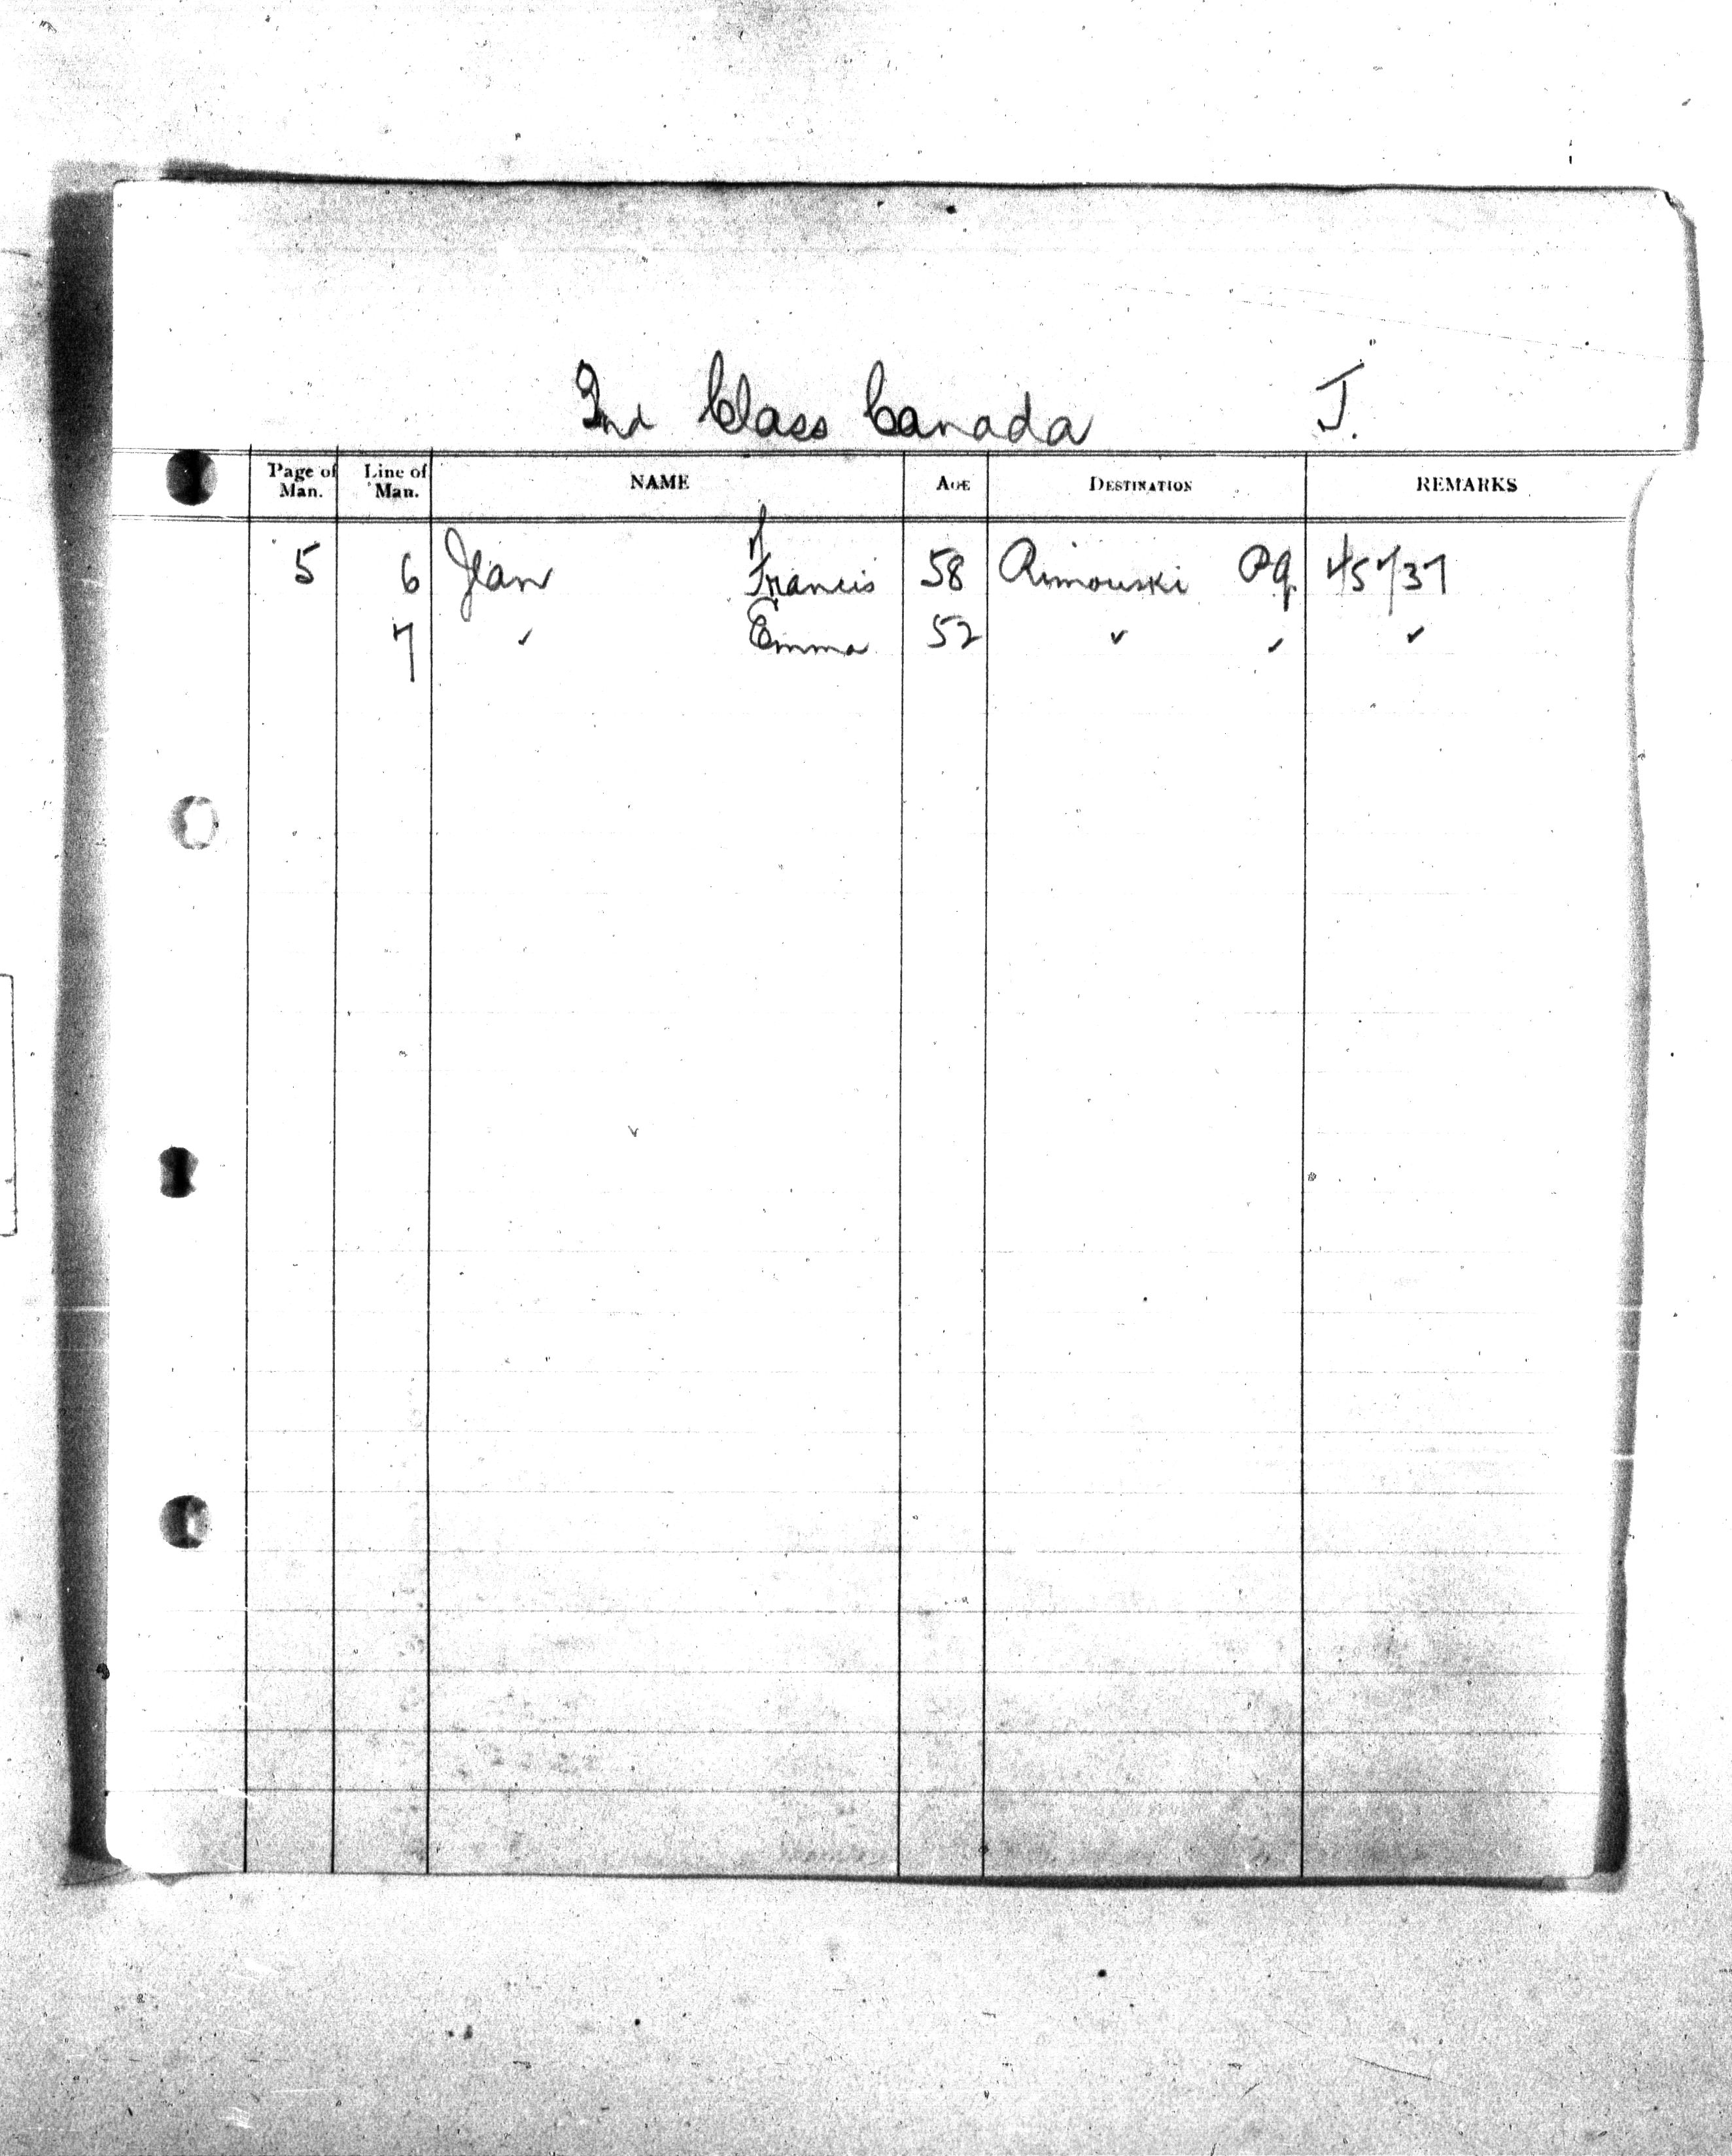 2nd Class Canada J.
Page of Man. Line of Man. NAME AGE DESTINATION REMARKS
5 6 Jean Francis 58 Rimouski P.Q.
7 " Emma 52 " " "